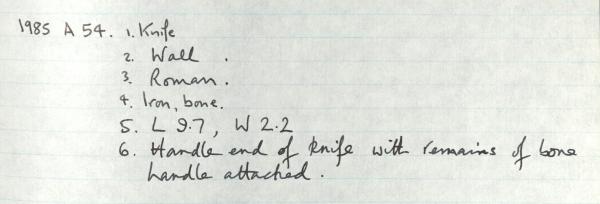 1985 A 54. 1. Knife
2. Wall .
3. Roman.
4. Iron, bone.
5. L 9.7, W 2.2
6. Handle end of knife with remains of bone
handle attached.